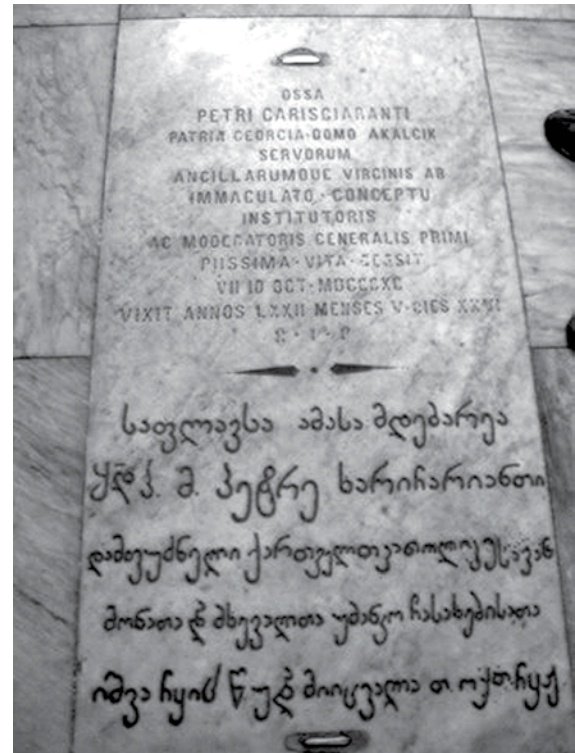 OSSA
PETRI CARISCIARANTI
PATRIA GEORGIA·DOMO AKALCIK
SERVORUM
ANCILLARUMQUE VIRGINIS AB
IMMACULATO·CONCEPTU
INSTITUTORIS
AC MODERATORIS GENERALIS PRIMI
PIISSIMA·VITA·CESSIT
VII ID OCT·MDCCCXC
VIXIT ANNOS LXXII MENSES V·DIES XXVI
საფლავსა ამასა მდებარეა
მ. პეტრე ხარისჭარიანთი
დამფუძნებელი ქართველთ კათოლიკე სავან
მონათა და მხევალთა უმანკო ჩასახებისათა
მიიცვალა